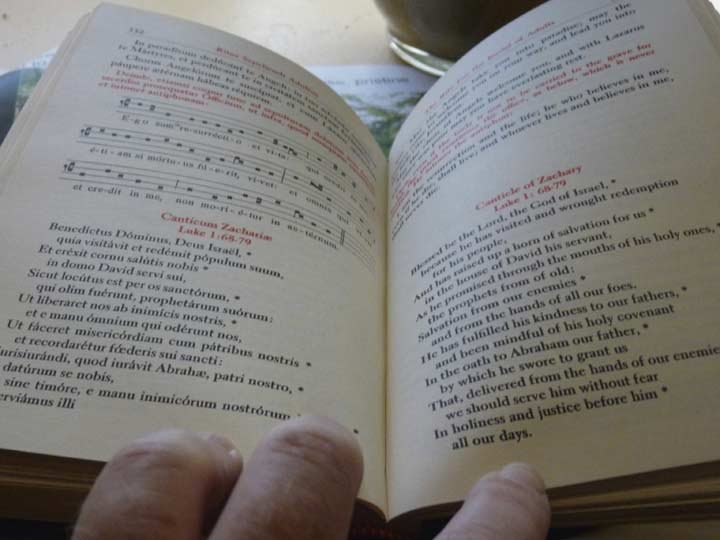 132
Ritus Sepeliendi Adultos
In paradísum dedúcant te Angeli; in tuo advéntu
te Mártyres, et perdúcant te in civitátem
Chorus Angelórum te suscípiat, et cum Lázaro
páupere ætérnam hábeas réquiem.
E-go sum re-surrécti-o et vi-ta: qui
é-ti-am si mórtu-us fú-e-rit, vivet: et omnis qui
et credit in me, non mori-étur in æ-térnum.
Canticum Zachariæ
Luke 1:68-79
Benedíctus Dóminus, Deus Israël, *
quia visitávit et redémit pópulum suum,
Et eréxit cornu salútis nobis *
in domo David servi sui,
Sicut locútus est per os sanctórum, *
qui olim fuérunt, prophetárum suórum:
Ut liberaret nos ab inimícis nostris, *
et e manu ómnium qui odérunt nos,
Ut fáceret misericórdiam cum pátribus nostris *
et recordarétur fœderis sui sancti:
Jurisjurándi, quod iurávit Abrahæ, patri nostro, *
datúrum se nobis,
sine timóre, e manu inimicórum nostrórum
serviámus illi *
for the Burial of Adults
take you into paradise; may the
on your way; and lead you into
Angels welcome you, and with Lazarus
may you have everlasting rest.
to be carried to the grave for
as below, which is never
resurrection and the life; he who believes in me,
shall live; and whoever lives and believes in me,
Canticle of Zachary
Luke 1: 68-79
Blessed be the Lord, the God of Israel, *
because he has visited and wrought redemption
for his people,
And has raised up a horn of salvation for us *
in the house of David his servant,
As he promised through the mouths of his holy ones, *
the prophets from of old:
Salvation from our enemies *
and from the hands of all our foes.
He has fulfilled his kindness to our fathers, *
and been mindful of his holy covenant
In the oath to Abraham our father, *
by which he swore to grant us
That, delivered from the hands of our enemies
we should serve him without fear
In holiness and justice before him *
all our days.